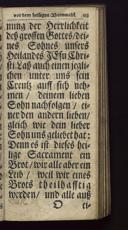 vor dem heiligen Abendmahl.
nung der Herrlichkeit
deß grossen Gottes/dei-
nes Sohnes unsers
Heilandes JEsu Chri-
sti. Laß auch einen jegli-
chen unter uns sein
Creutz auff sich neh-
men / deinem lieben
Sohn nachfolgen / ei-
ner den andern lieben/
gleich wie dein lieber
Sohn uns geliebet hat:
Denn es ist dieses hei-
lige Sacrament ein
Brot / wir alle aber ein
Leib / weil wir eines
Brots theilhafftig
werden / und alle auß
O ei-